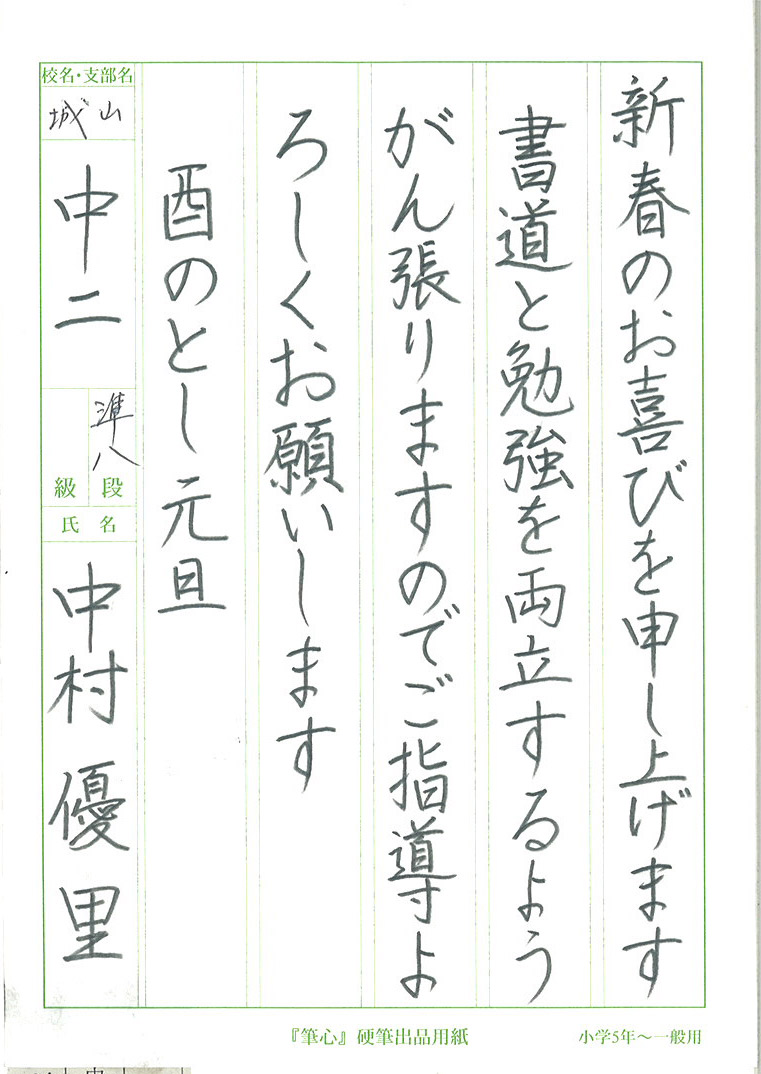 新春のお喜びを申し上げます
書道と勉強を両立するよう
がん張りますのでご指導よ
ろしくお願いします
酉のとし元旦
校名・支部名
城山
中二
準八
段
級
氏名
中村優里
『筆心』硬筆出品用紙
小学5年〜一般用